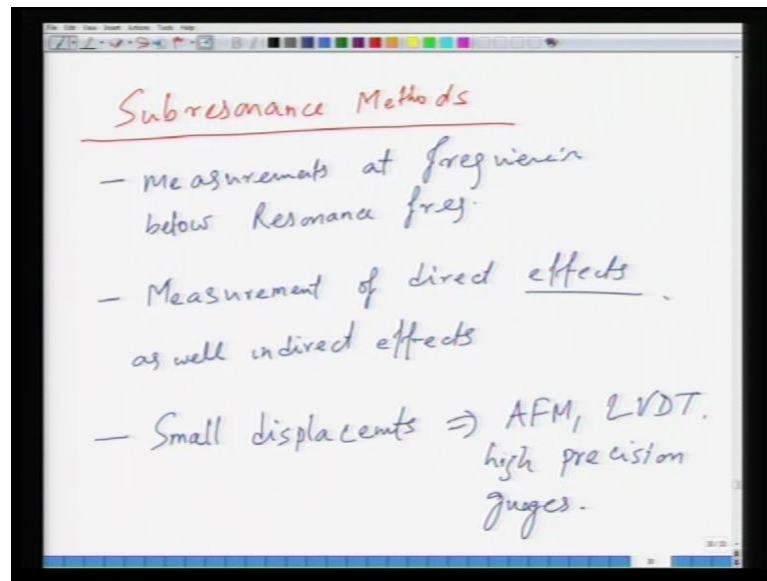 File Edit View Insert Actions Tools Help
Subresonance Methods
- Measurements at frequencies
below Resonance freq.
- Measurement of direct effects.
as well indirect effects
- Small displacemts ⇒ AFM, LVDT.
high precision
guages.